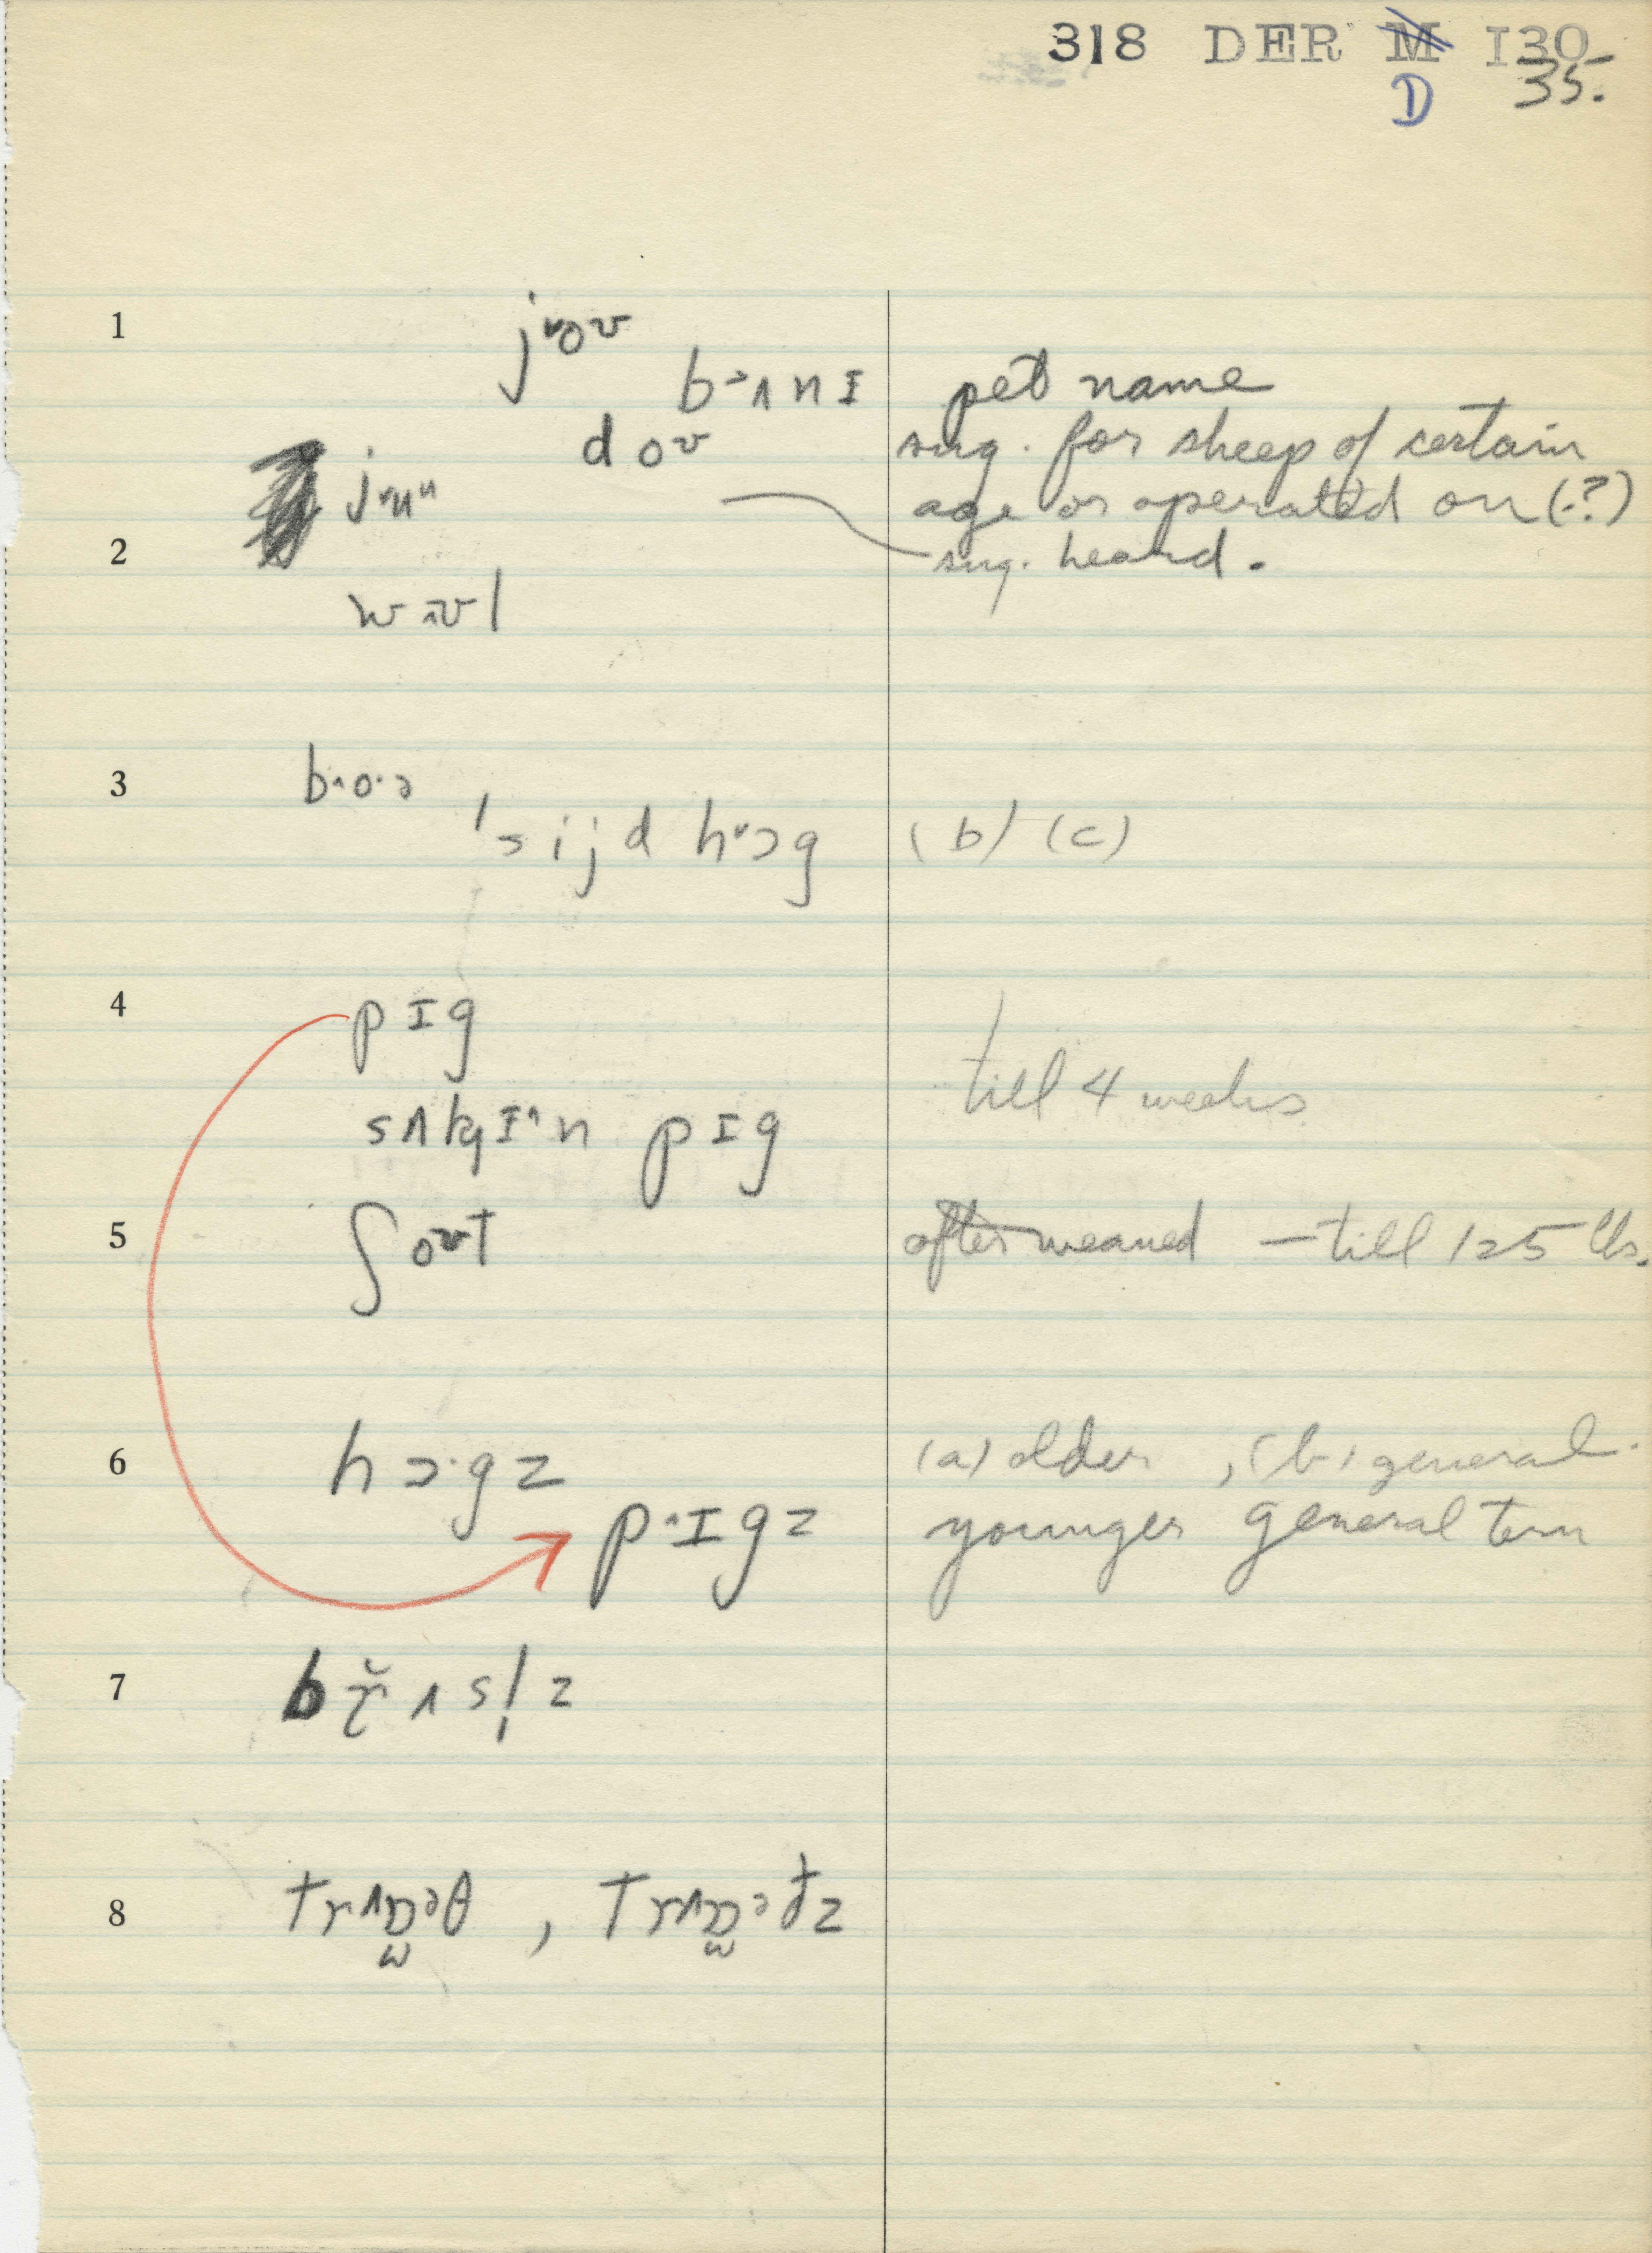 318 DER M I30
D 35.
1 j˅oʊ
b˃ʌnɪ pet name
doʊ sug. for sheep of certain
j˅uᵘ age or operated on (?)
2 sug. heard.
wʌʊl
3 b˄o·ə
ˈsijd h˅ɔg (b) (c)
4 pɪg
till 4 weeks
sʌkɪ˄n pɪg
5 ʃoʊt after weaned — till 125 lbs.
6 hɔ·gz (a) older, (b) general.
p˄ɪgz younger general term
7 br̆ʌsl̩z
8